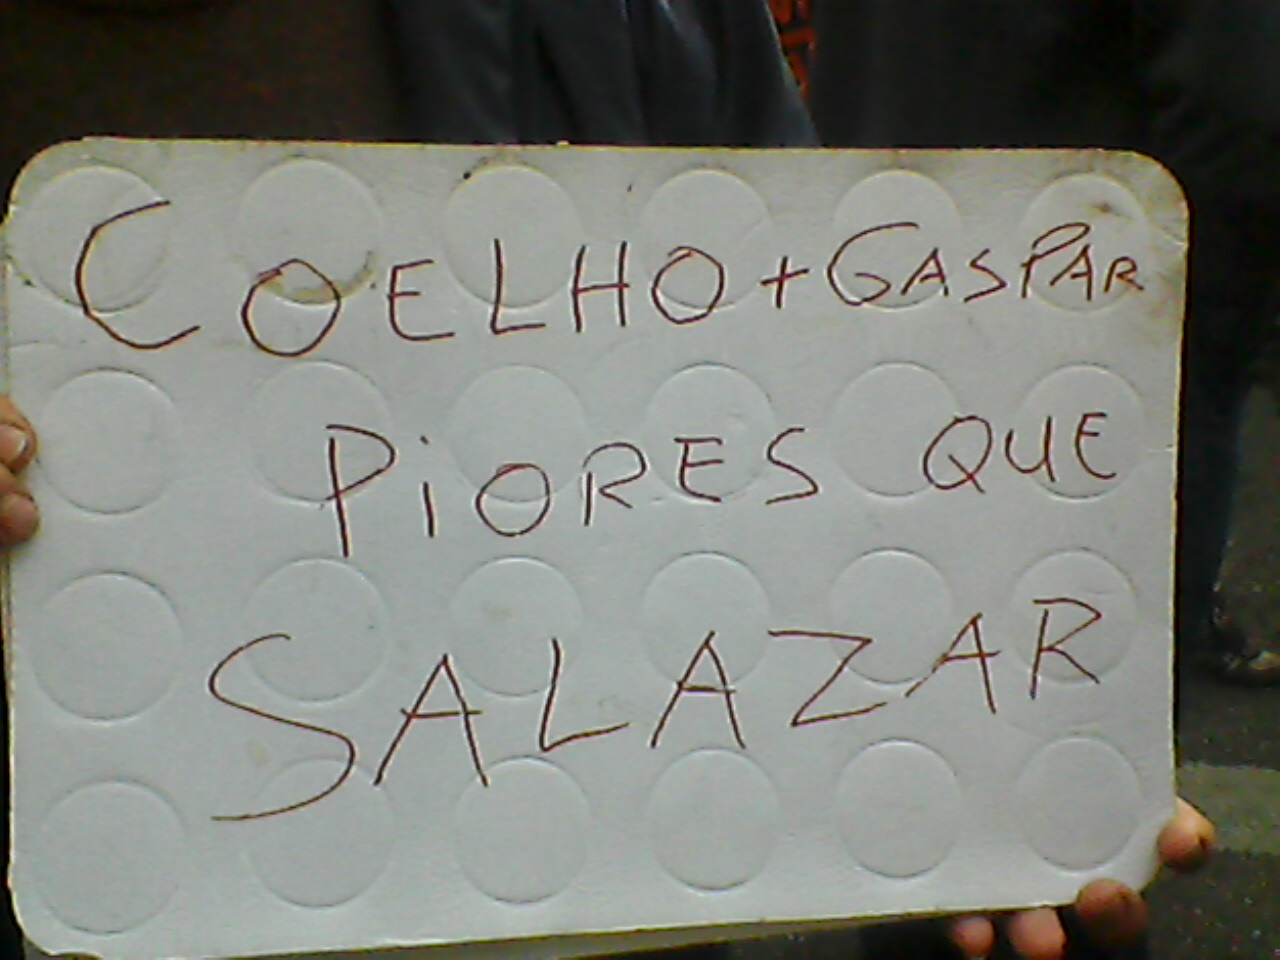 COELHO + GASPAR
PiORES QUE
SALAZAR